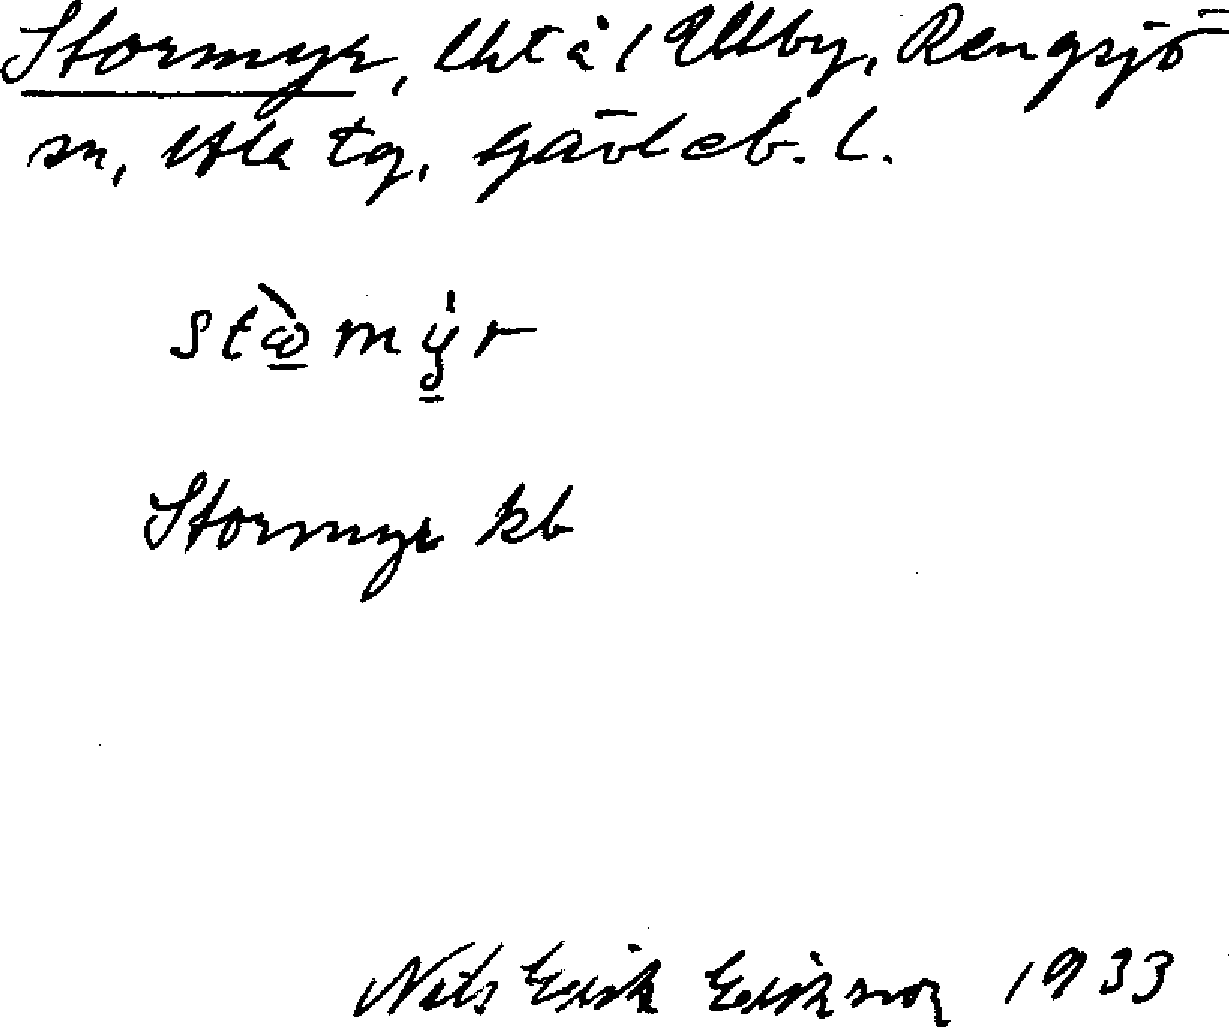 Stormyr, lht å 1 Ullby, Rengsjö
sn, Ala tg, Gävleb. l.
stὼ̲my̲̍r
Stormyr kb
Nils Erik Erikson 1933